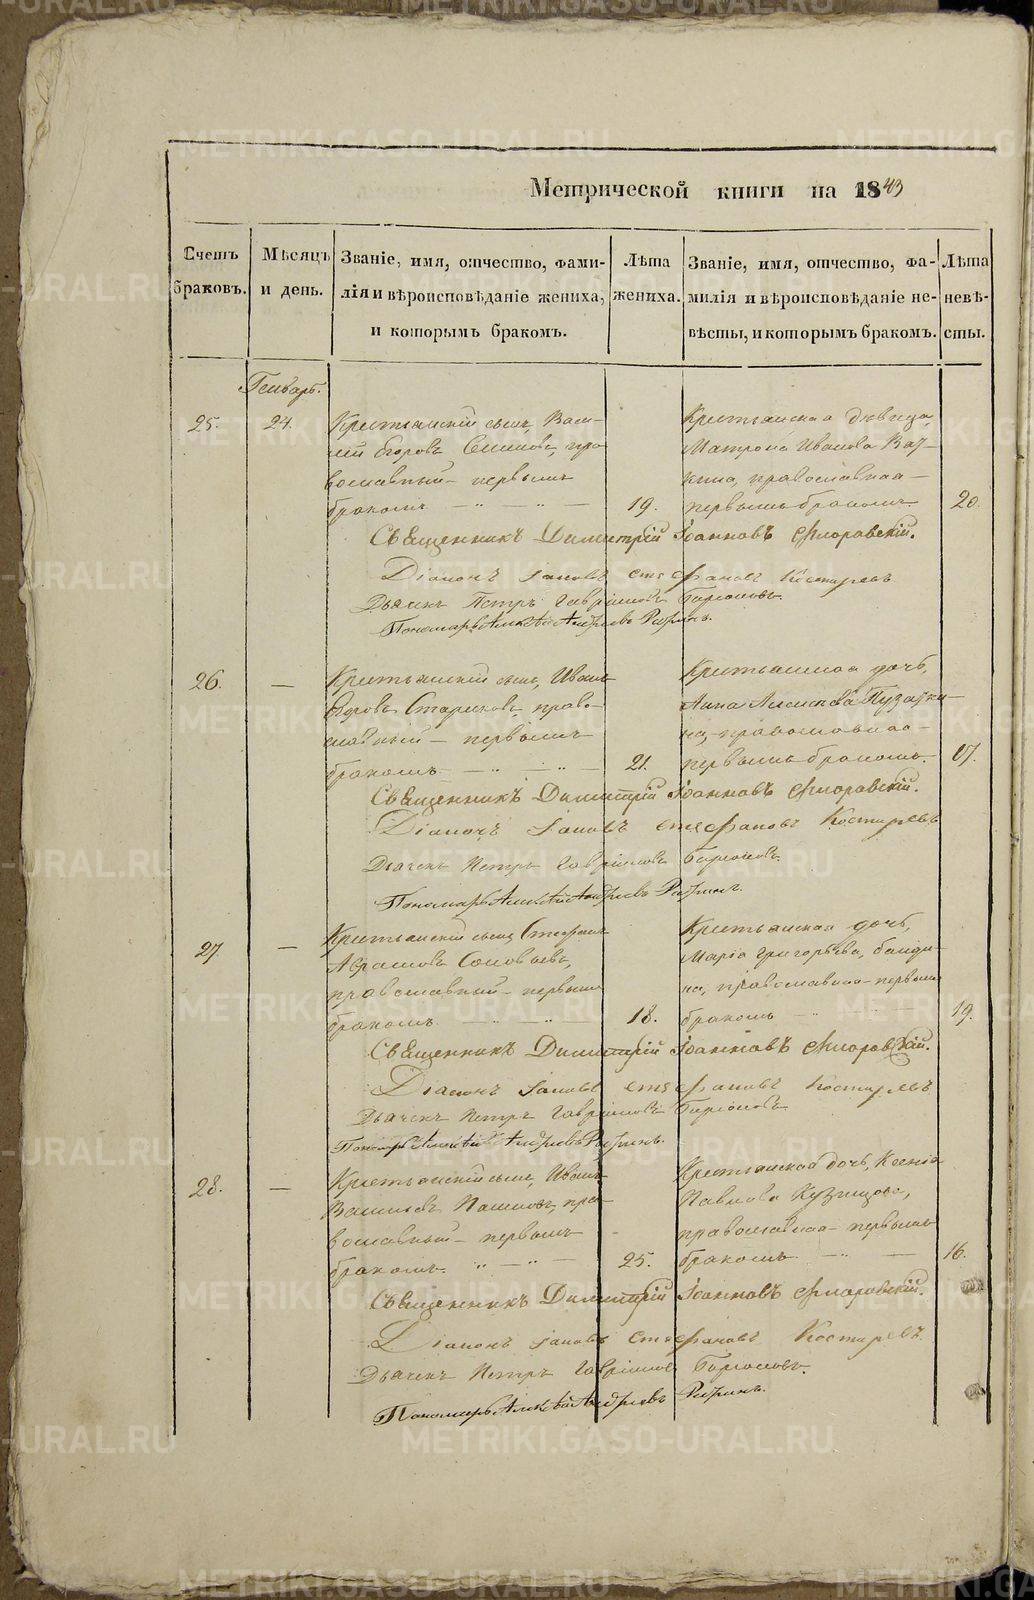 Метрической книги на 1843
Счетъ браковъ.
Мѣсяцъ и день.
Званіе, имя, отчество, фами-
лія и вѣроисповѣданіе жениха,
и которымъ бракомъ.
Лѣта
жениха.
Званіе, имя, отчество, фа-
милія и вѣроисповѣданіе не-
вѣсты, и которымъ бракомъ.
Лѣта
невѣ-
сты.
Генварь.
25.
24.
Крестьянскій сынъ, Васи-
лій Егоровъ пра
вославный - первымъ
бракомъ
19.
Крестьянская дѣвица,
Матрона Иванова
православная -
первымъ бракомъ
20.
Священникъ Димитрій Іоанновъ Флоровскій.
Діаконъ Іаковъ Стефановъ Костыревъ
Дьячекъ Петръ Гавріиловъ
Пономарь Алексѣй Андреевъ
26.
—
Крестьянскій сынъ, Иванъ
Стариковъ, право-
славный - первымъ
бракомъ
21.
Крестьянская дочь,
Анна
на, православная -
первымъ бракомъ.
17.
Священникъ Димитрій Іоанновъ Флоровскій.
Діаконъ Іаковъ Стефановъ Костыревъ
Дьячекъ Петръ Гавріиловъ
Пономарь Алексѣй Андреевъ
27.
—
Крестьянскій сынъ Стефанъ
Аврамовъ Соловьевъ,
православный - первымъ
бракомъ
18.
Крестьянская дочь,
Марія Григорьева,
на, православная - первымъ
бракомъ
19.
Священникъ Димитрій Іоанновъ Флоровскій.
Діаконъ Іаковъ Стефановъ Костыревъ
Дьячекъ Петръ Гавріиловъ
Пономарь Алексѣй Андреевъ
28.
—
Крестьянскій сынъ, Иванъ
Васильевъ пра-
вославный - первымъ
бракомъ.
25.
Крестьянская дочь, Ксенія
Павлова Кузнецова,
православная - первымъ
бракомъ
16.
Священникъ Димитрій Іоанновъ Флоровскій.
Діаконъ Іаковъ Стефановъ Костыревъ
Дьячекъ Петръ Гавріиловъ
Пономарь Алексѣй Андреевъ
METRIKI.GASO-URAL.RU